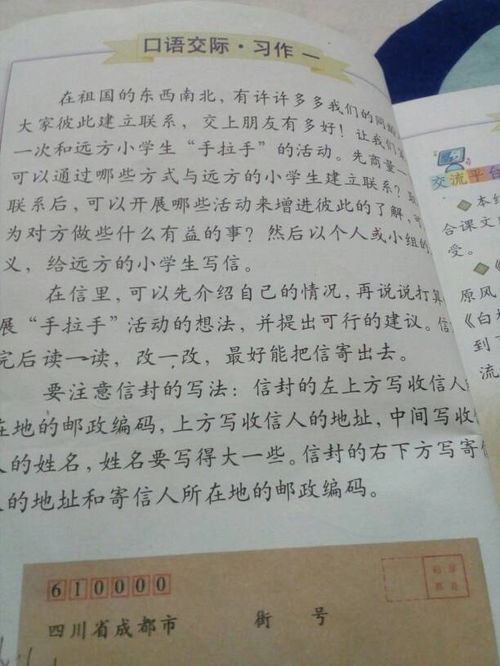 口语交际·习作一
在祖国的东西南北，有许许多多我们的同龄
大家彼此建立联系，交上朋友有多好！让我们
一次和远方小学生“手拉手”的活动。先商量一
可以通过哪些方式与远方的小学生建立联系？
联系后，可以开展哪些活动来增进彼此的了解，可
为对方做些什么有益的事？然后以个人或小组的
义，给远方的小学生写信。
在信里，可以先介绍自己的情况，再说说打算
展“手拉手”活动的想法，并提出可行的建议。信
完后读一读，改一改，最好能把信寄出去。
要注意信封的写法：信封的左上方写收信人
在地的邮政编码，上方写收信人的地址，中间写收
人的姓名，姓名要写得大一些。信封的右下方写寄信
人的地址和寄信人所在地的邮政编码。
610000
四川省成都市 街 号
交流平台
本
合课文
受。
原风
《白杨
到了
流